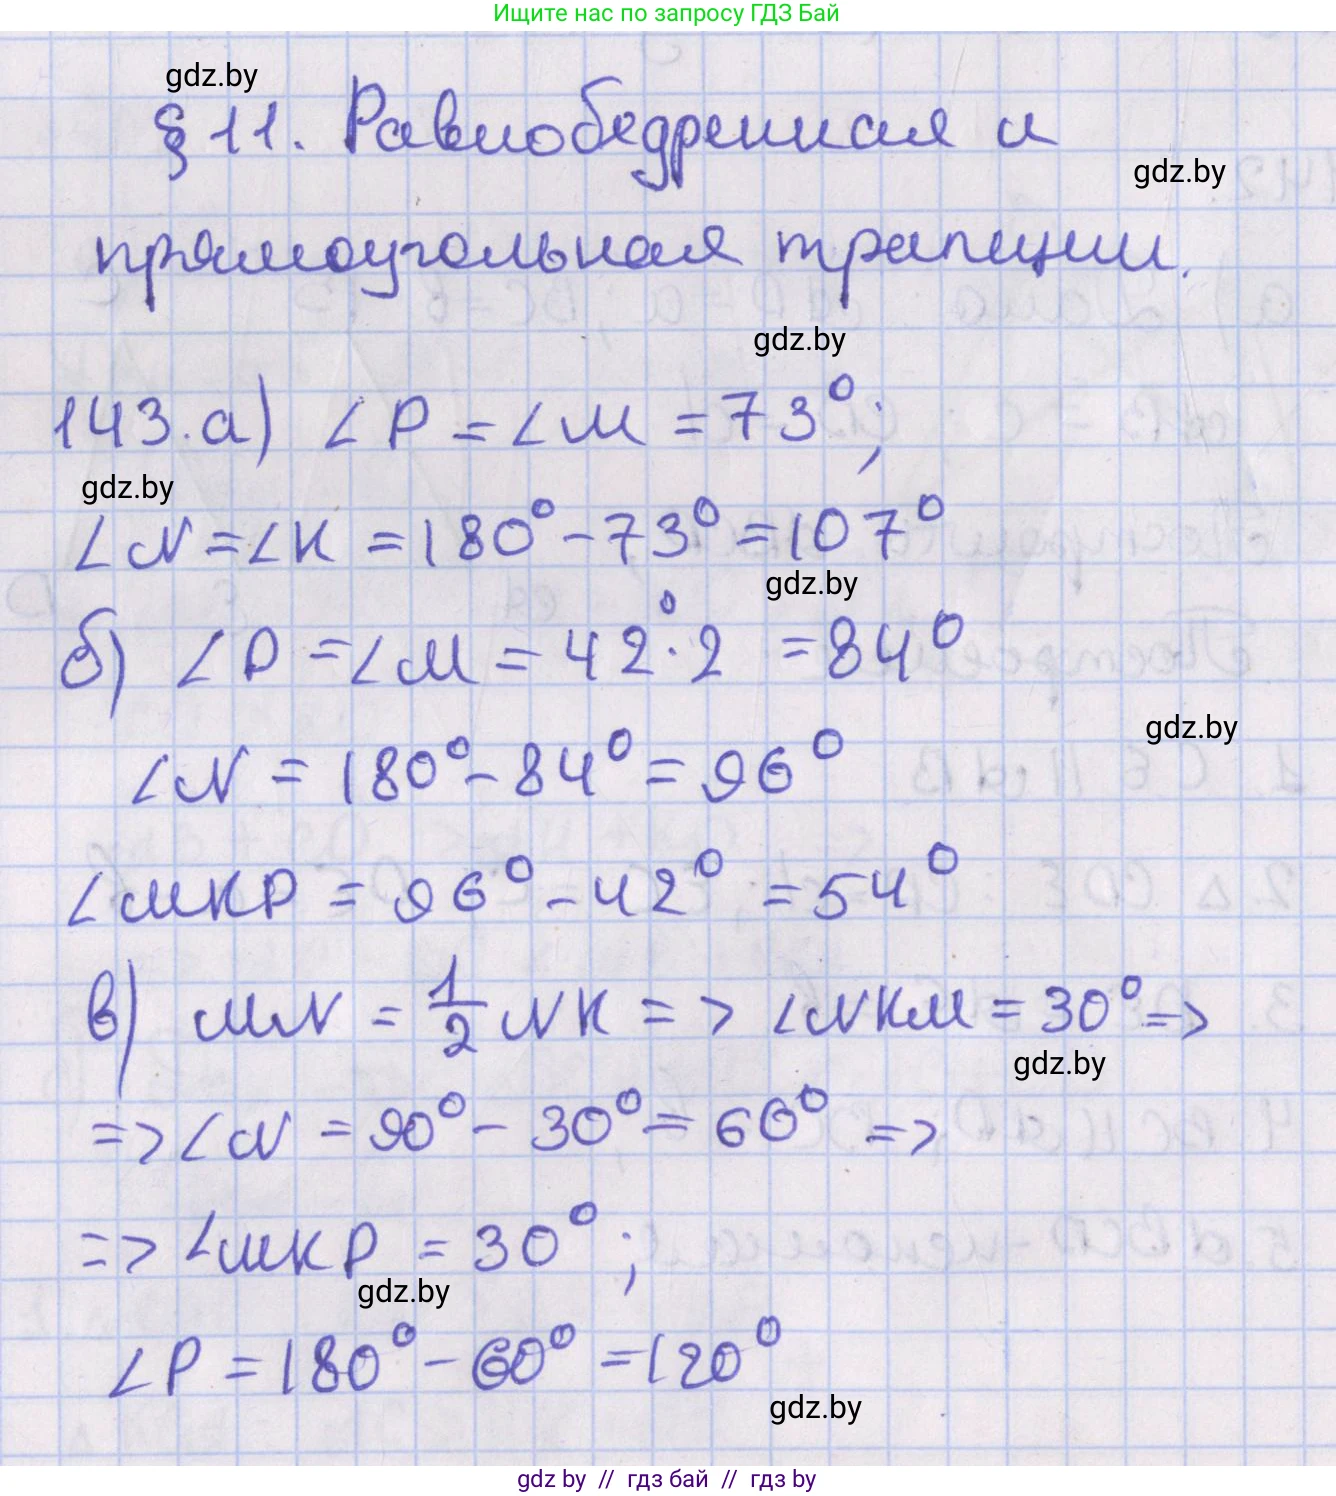 Ищите нас по запросу ГДЗ Бай
gdz.by
§ 11. Равнобедренная и
gdz.by
прямоугольная трапеции.
gdz.by
143. а) ∠P = ∠M = 73°;
gdz.by
∠N = ∠K = 180° - 73° = 107°
gdz.by
б) ∠P = ∠M = 42° · 2 = 84°
gdz.by
∠N = 180° - 84° = 96°
∠MKP = 96° - 42° = 54°
в) MN = 1/2 NK => ∠NKM = 30° =>
gdz.by
=> ∠N = 90° - 30° = 60° =>
=> ∠MKP = 30°;
gdz.by
∠P = 180° - 60° = 120°
gdz.by
gdz by // гдз бай // гдз by